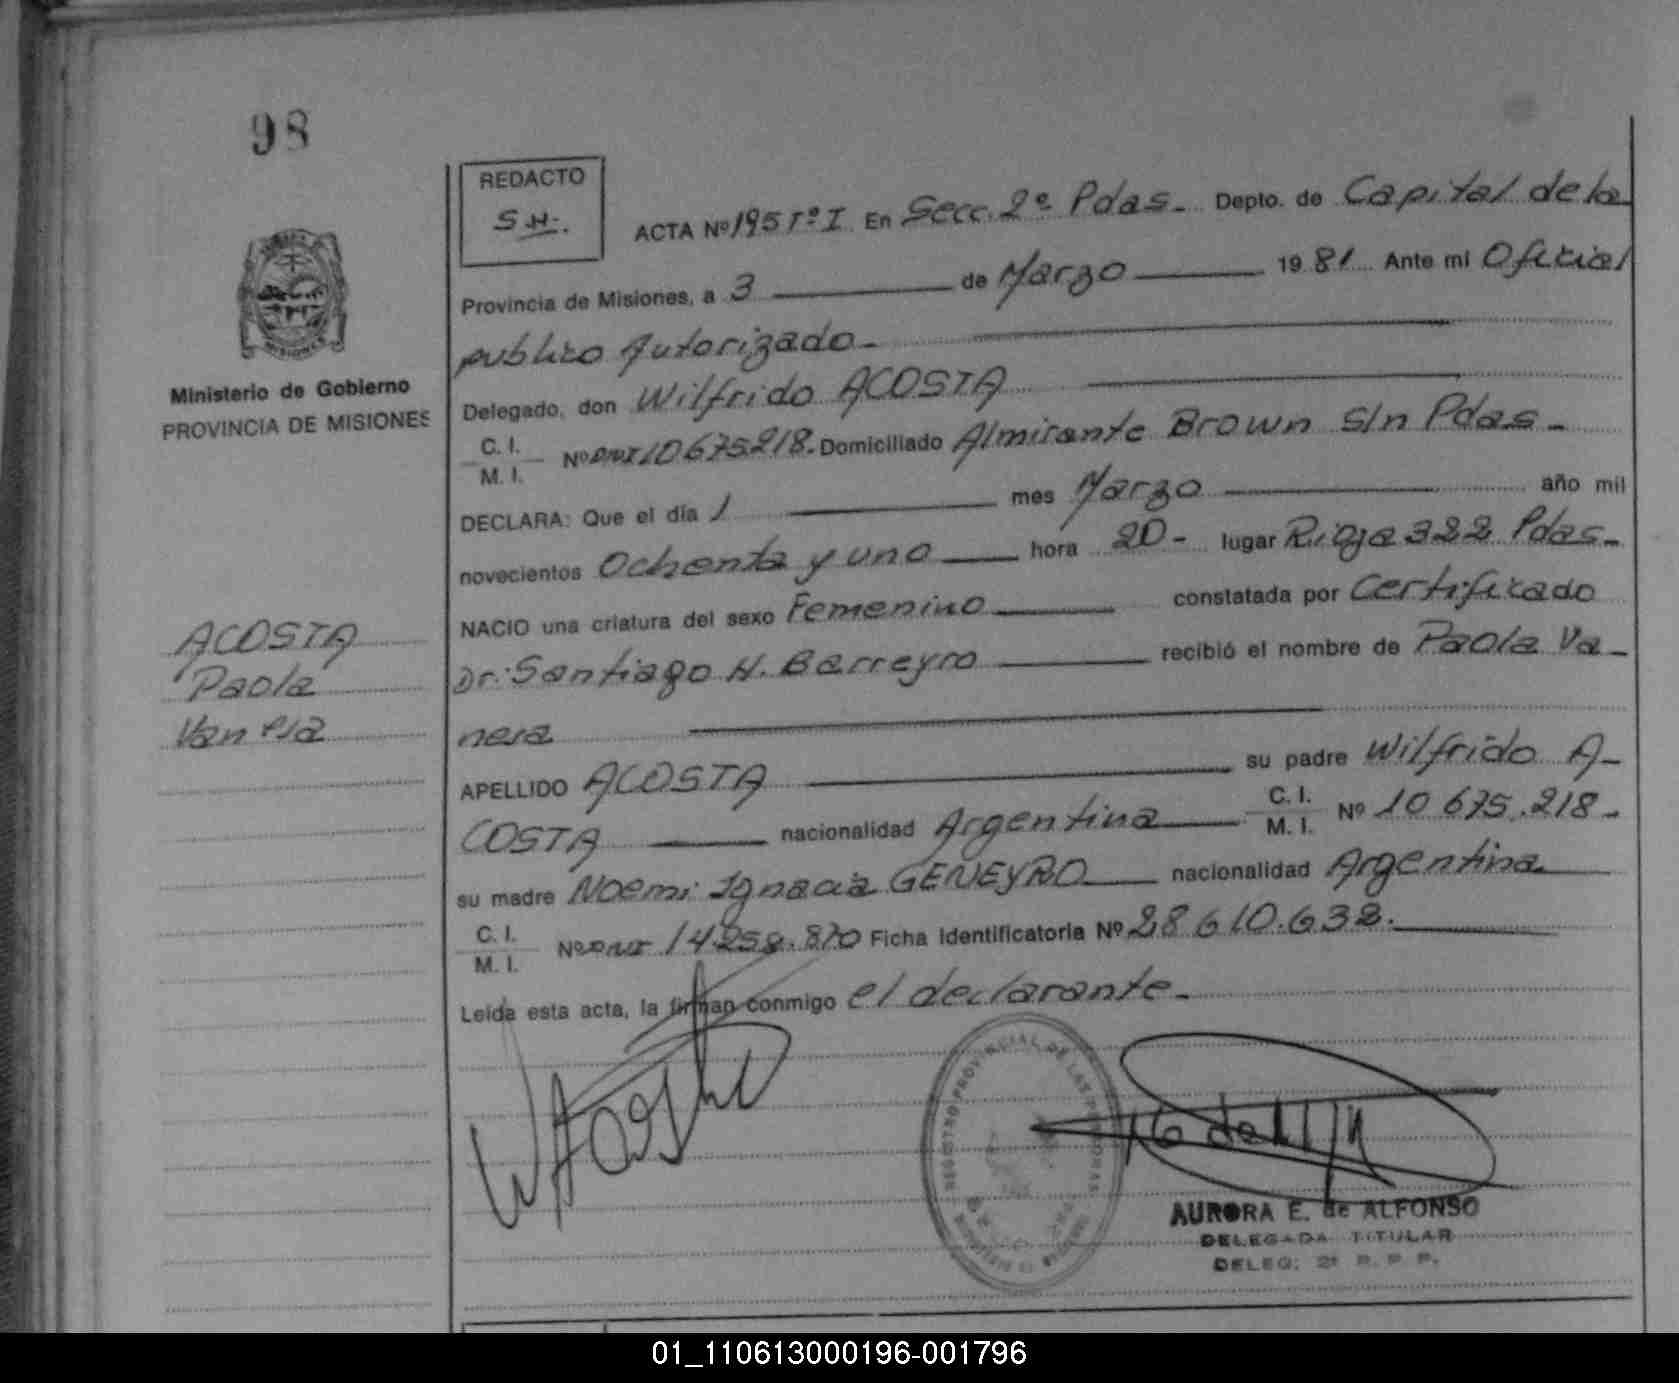 98
REDACTO
S.H.
ACTA Nº 195 Tº I En Secc. 2º Pdas. Depto. de Capital de la
Provincia de Misiones, a 3 de Marzo 1981 Ante mi Oficial
publico Autorizado
Delegado, don Wilfrido ACOSTA
C. I.
M. I. Nº DNI 10675218. Domiciliado Almirante Brown S/n Pdas
DECLARA: Que el día 1 mes Marzo año mil
novecientos Ochenta y uno hora 20- lugar Rioja 322 Pdas
NACIO una criatura del sexo Femenino constatada por Certificado
Dr. Santiago H. Barreyro recibió el nombre de Paola Va-
nesa
APELLIDO ACOSTA su padre Wilfrido A-
COSTA nacionalidad Argentina C. I. M. I. Nº 10.675.218-
su madre Noemi Ignacia GENEYRO nacionalidad Argentina
C. I.
M. I. Nº DNI 14.258.870 Ficha Identificatoria Nº 28.610.632.
Leída esta acta, la firman conmigo el declarante
Ministerio de Gobierno
PROVINCIA DE MISIONES
ACOSTA
Paola
Vanesa
REGISTRO PROVINCIAL DE LAS PERSONAS
AURORA E. de ALFONSO
DELEGADA TITULAR
DELEG: 2ª R. P. P.
01_110613000196-001796